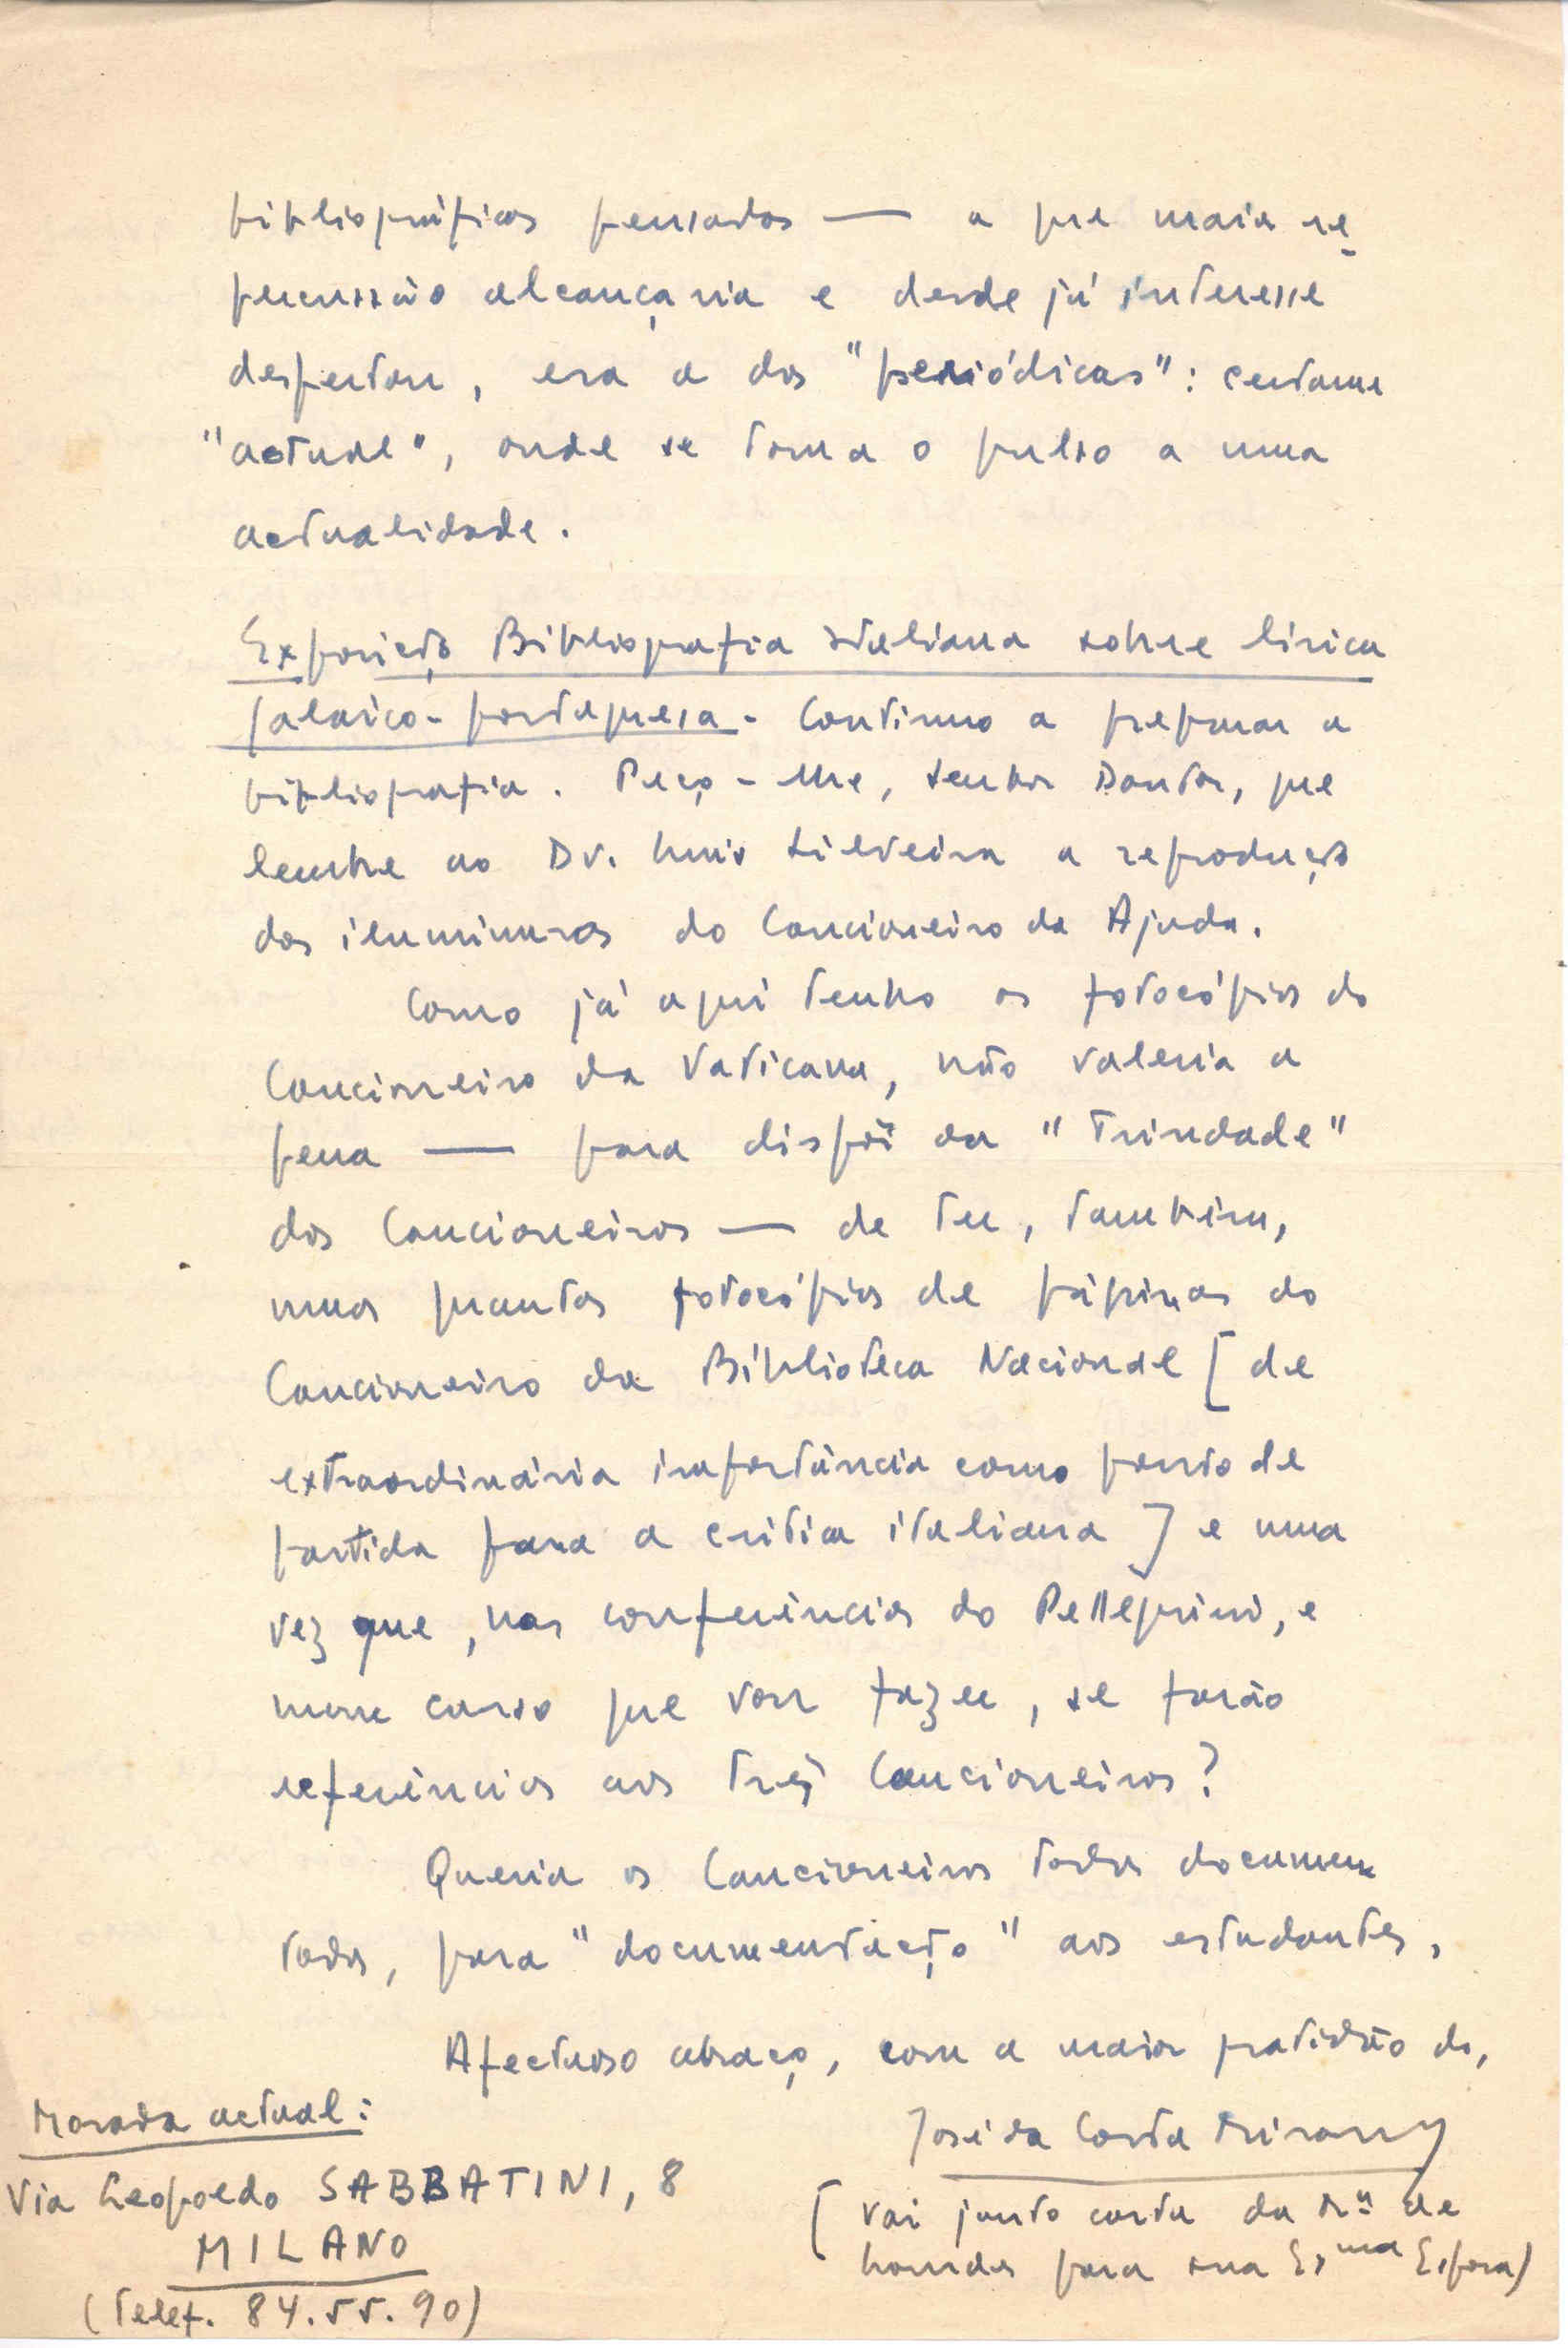 bibliográficas pensadas — a que maia re
percussão alcançaria e desde já interesse
despertou, era a dos "periódicos": certame
"actual", onde se toma o pulso a uma
actualidade.
Exposição Bibliografia italiana sobre lírica
galaico-portuguesa - Continuo a preparar a
bibliografia. Peço-lhe, senhor Doutor, que
lembre ao Dr. Luís Silveira a reprodução
das iluminuras do Cancioneiro da Ajuda.
Como já aqui tenho as fotocópias do
Cancioneiro da Vaticana, não valeria a
pena — para dispôr da "Trindade"
dos Cancioneiros — de ter, também,
umas quantas fotocópias de páginas do
Cancioneiro da Biblioteca Nacional [de
extraordinária importância como ponto de
partida para a crítica italiana] e uma
vez que, nas conferências do Pellegrini, e
num curso que vou fazer, se farão
referências aos três Cancioneiros?
Queria os Cancioneiros todos documen
tados, para "documentação" aos estudantes.
Afectuoso abraço, com a maior gratidão do,
José da Costa Miranda
Morada actual:
Via Leopoldo SABBATINI, 8
MILANO
(Telef. 84.55.90)
[Vai junto carta da Mª de
Lourdes para sua Exma Esposa)